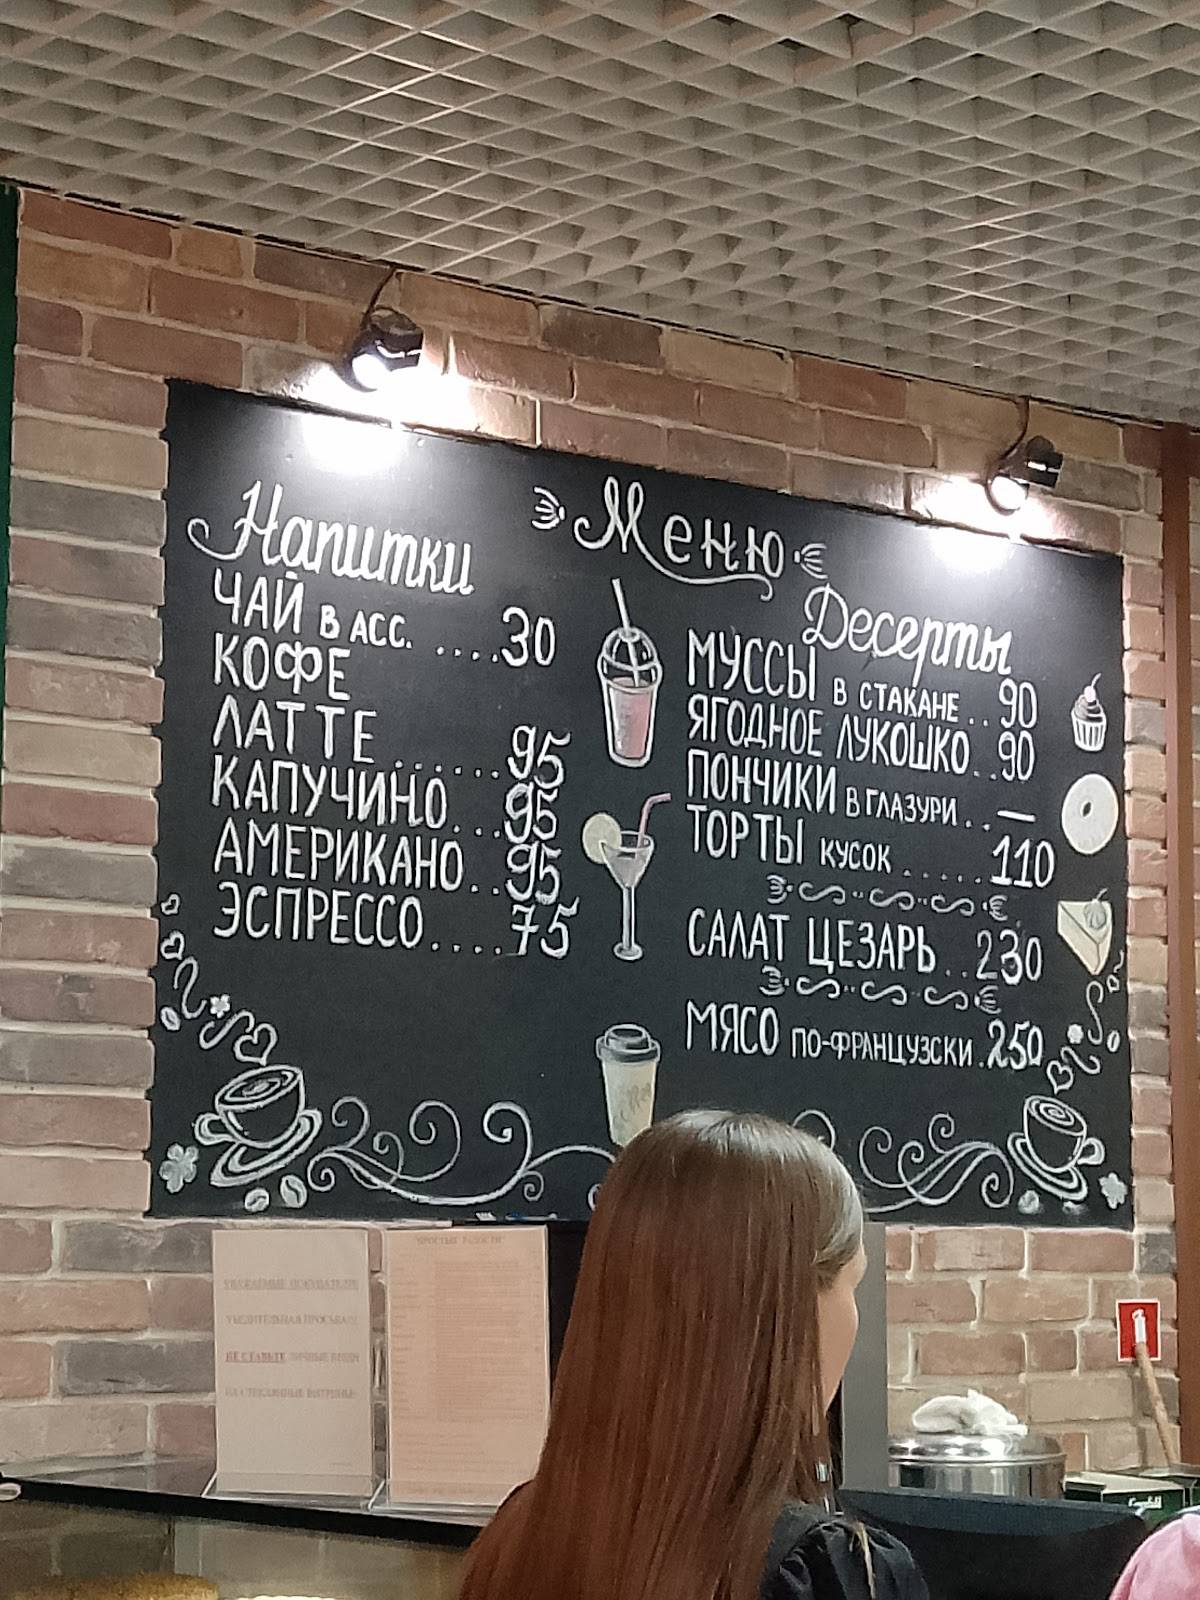 Меню
Напитки
ЧАЙ В АСС. ....30
КОФЕ
ЛАТТЕ ......95
КАПУЧИНО...95
АМЕРИКАНО..95
ЭСПРЕССО....75
Десерты
МУССЫ В СТАКАНЕ..90
ЯГОДНОЕ ЛУКОШКО..90
ПОНЧИКИ В ГЛАЗУРИ..—
ТОРТЫ КУСОК.....110
САЛАТ ЦЕЗАРЬ..230
МЯСО ПО-ФРАНЦУЗСКИ.250
"ПРОСТЫЕ РАДОСТИ"
УВАЖАЕМЫЕ ПОКУПАТЕЛИ
УБЕДИТЕЛЬНАЯ ПРОСЬБА
НЕ СТАВЬТЕ ЛИЧНЫЕ ВЕЩИ
НА СТЕКЛЯННЫЕ ВИТРИНЫ